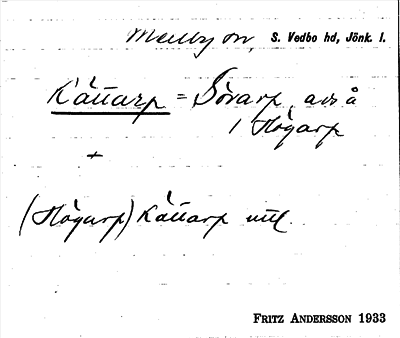 Mellby sn, S. Vedbo hd, Jönk. l.
Kättarp = Sörarp, avs å
i Högarp
+
(Högarp) Kättarp utt.
FRITZ ANDERSSON 1933